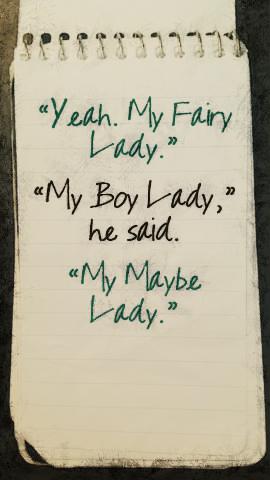 “Yeah. My Fairy
Lady.”
“My Boy Lady,”
he said.
“My Maybe
Lady.”